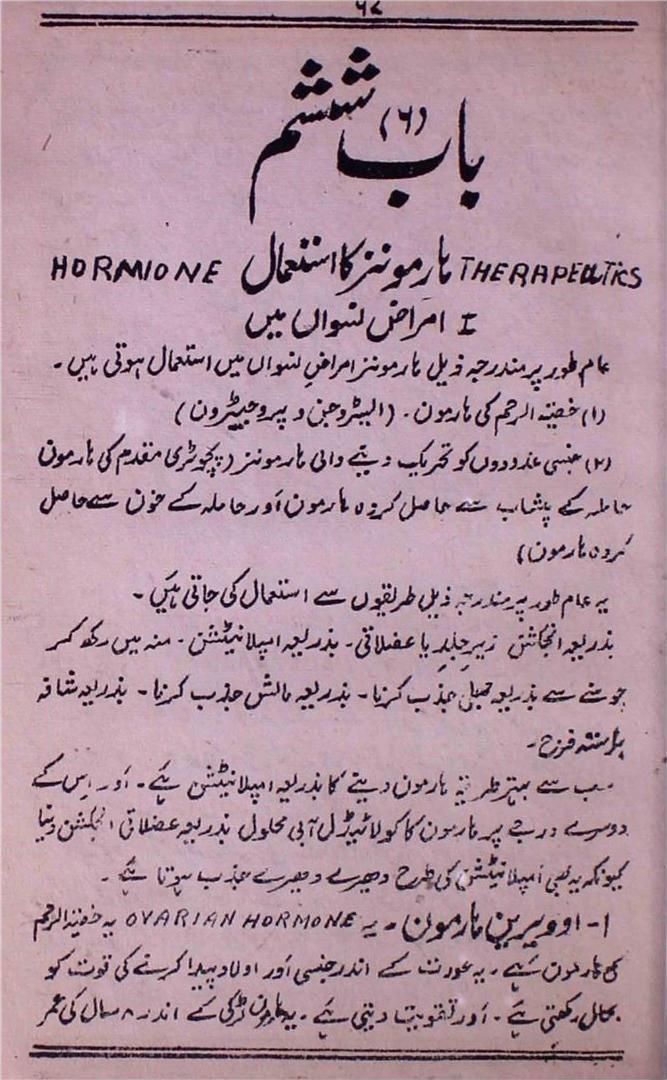 ۶۷
باب (۶) ششم
HORMIONE ہارمونز کا استعمال THERAPEUTICS
I امراض نسواں میں
عام طور پر مندرجہ ذیل ہارمونز امراضِ نسواں میں استعمال ہوتی ہیں۔
(۱) خصیتہ الرحم کی ہارمون۔ (ایسٹروجن و پروجیسٹرون)
(۲) جنسی غدودوں کو تحریک دینے والی ہارمونز (پچوٹری مقدم کی ہارمون
حاملہ کے پیشاب سے حاصل کردہ ہارمون اور حاملہ کے خون سے حاصل
کردہ ہارمون)
یہ عام طور پر مندرجہ ذیل طریقوں سے استعمال کی جاتی ہیں۔
بذریعہ انجکشن زیر جلد یا عضلاتی۔ بذریعہ امپلانیٹشن۔ منہ میں رکھ کر
چوسنے سے بذریعہ جھلی جذب کرنا۔ بذریعہ مالش جذب کرنا۔ بذریعہ شافہ
براستہ فرج۔
سب سے بہتر طریقہ ہارمون دینے کا بذریعہ امپلانیٹشن ہے۔ اور اس کے
دوسرے درجے پر ہارمون کا کولائیڈل آبی محلول بذریعہ عضلاتی انجکشن دینا
کیونکہ یہ بھی امپلانیٹشن کی طرح دھیرے دھیرے جذب ہوتا ہے۔
۱- اوویرین ہارمون۔ یہ OVARIAN HORMONE یہ خصیتہ الرحم
کی ہارمون ہے۔ یہ عورت کے اندر جنسی اور اولاد پیدا کرنے کی قوت کو
بحال رکھتی ہے۔ اور تقویت دیتی ہے۔ یہ ہارمون لڑکی کے اندر ۸ سال کی عمر